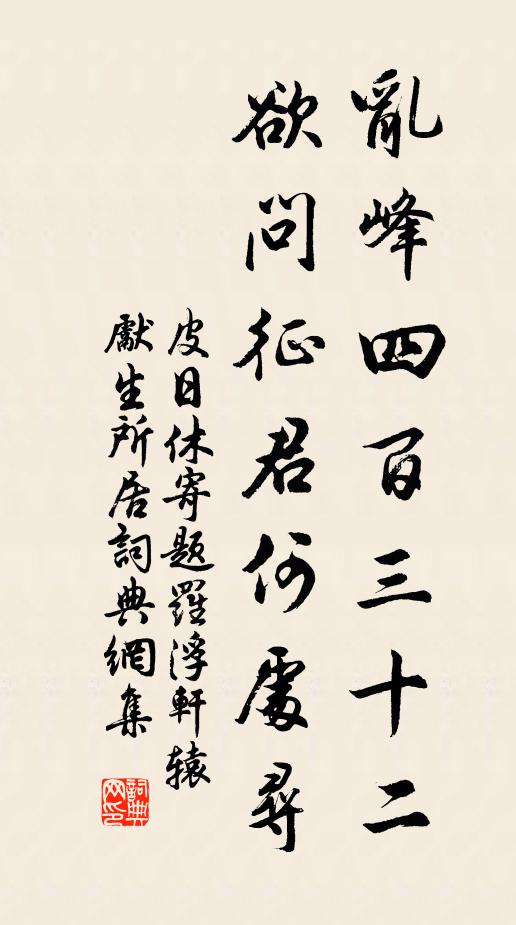 亂峰四百三十二
欲問征君何處尋
皮日休寄題羅浮軒辕
獻生所居詞典網集
詞典
网印